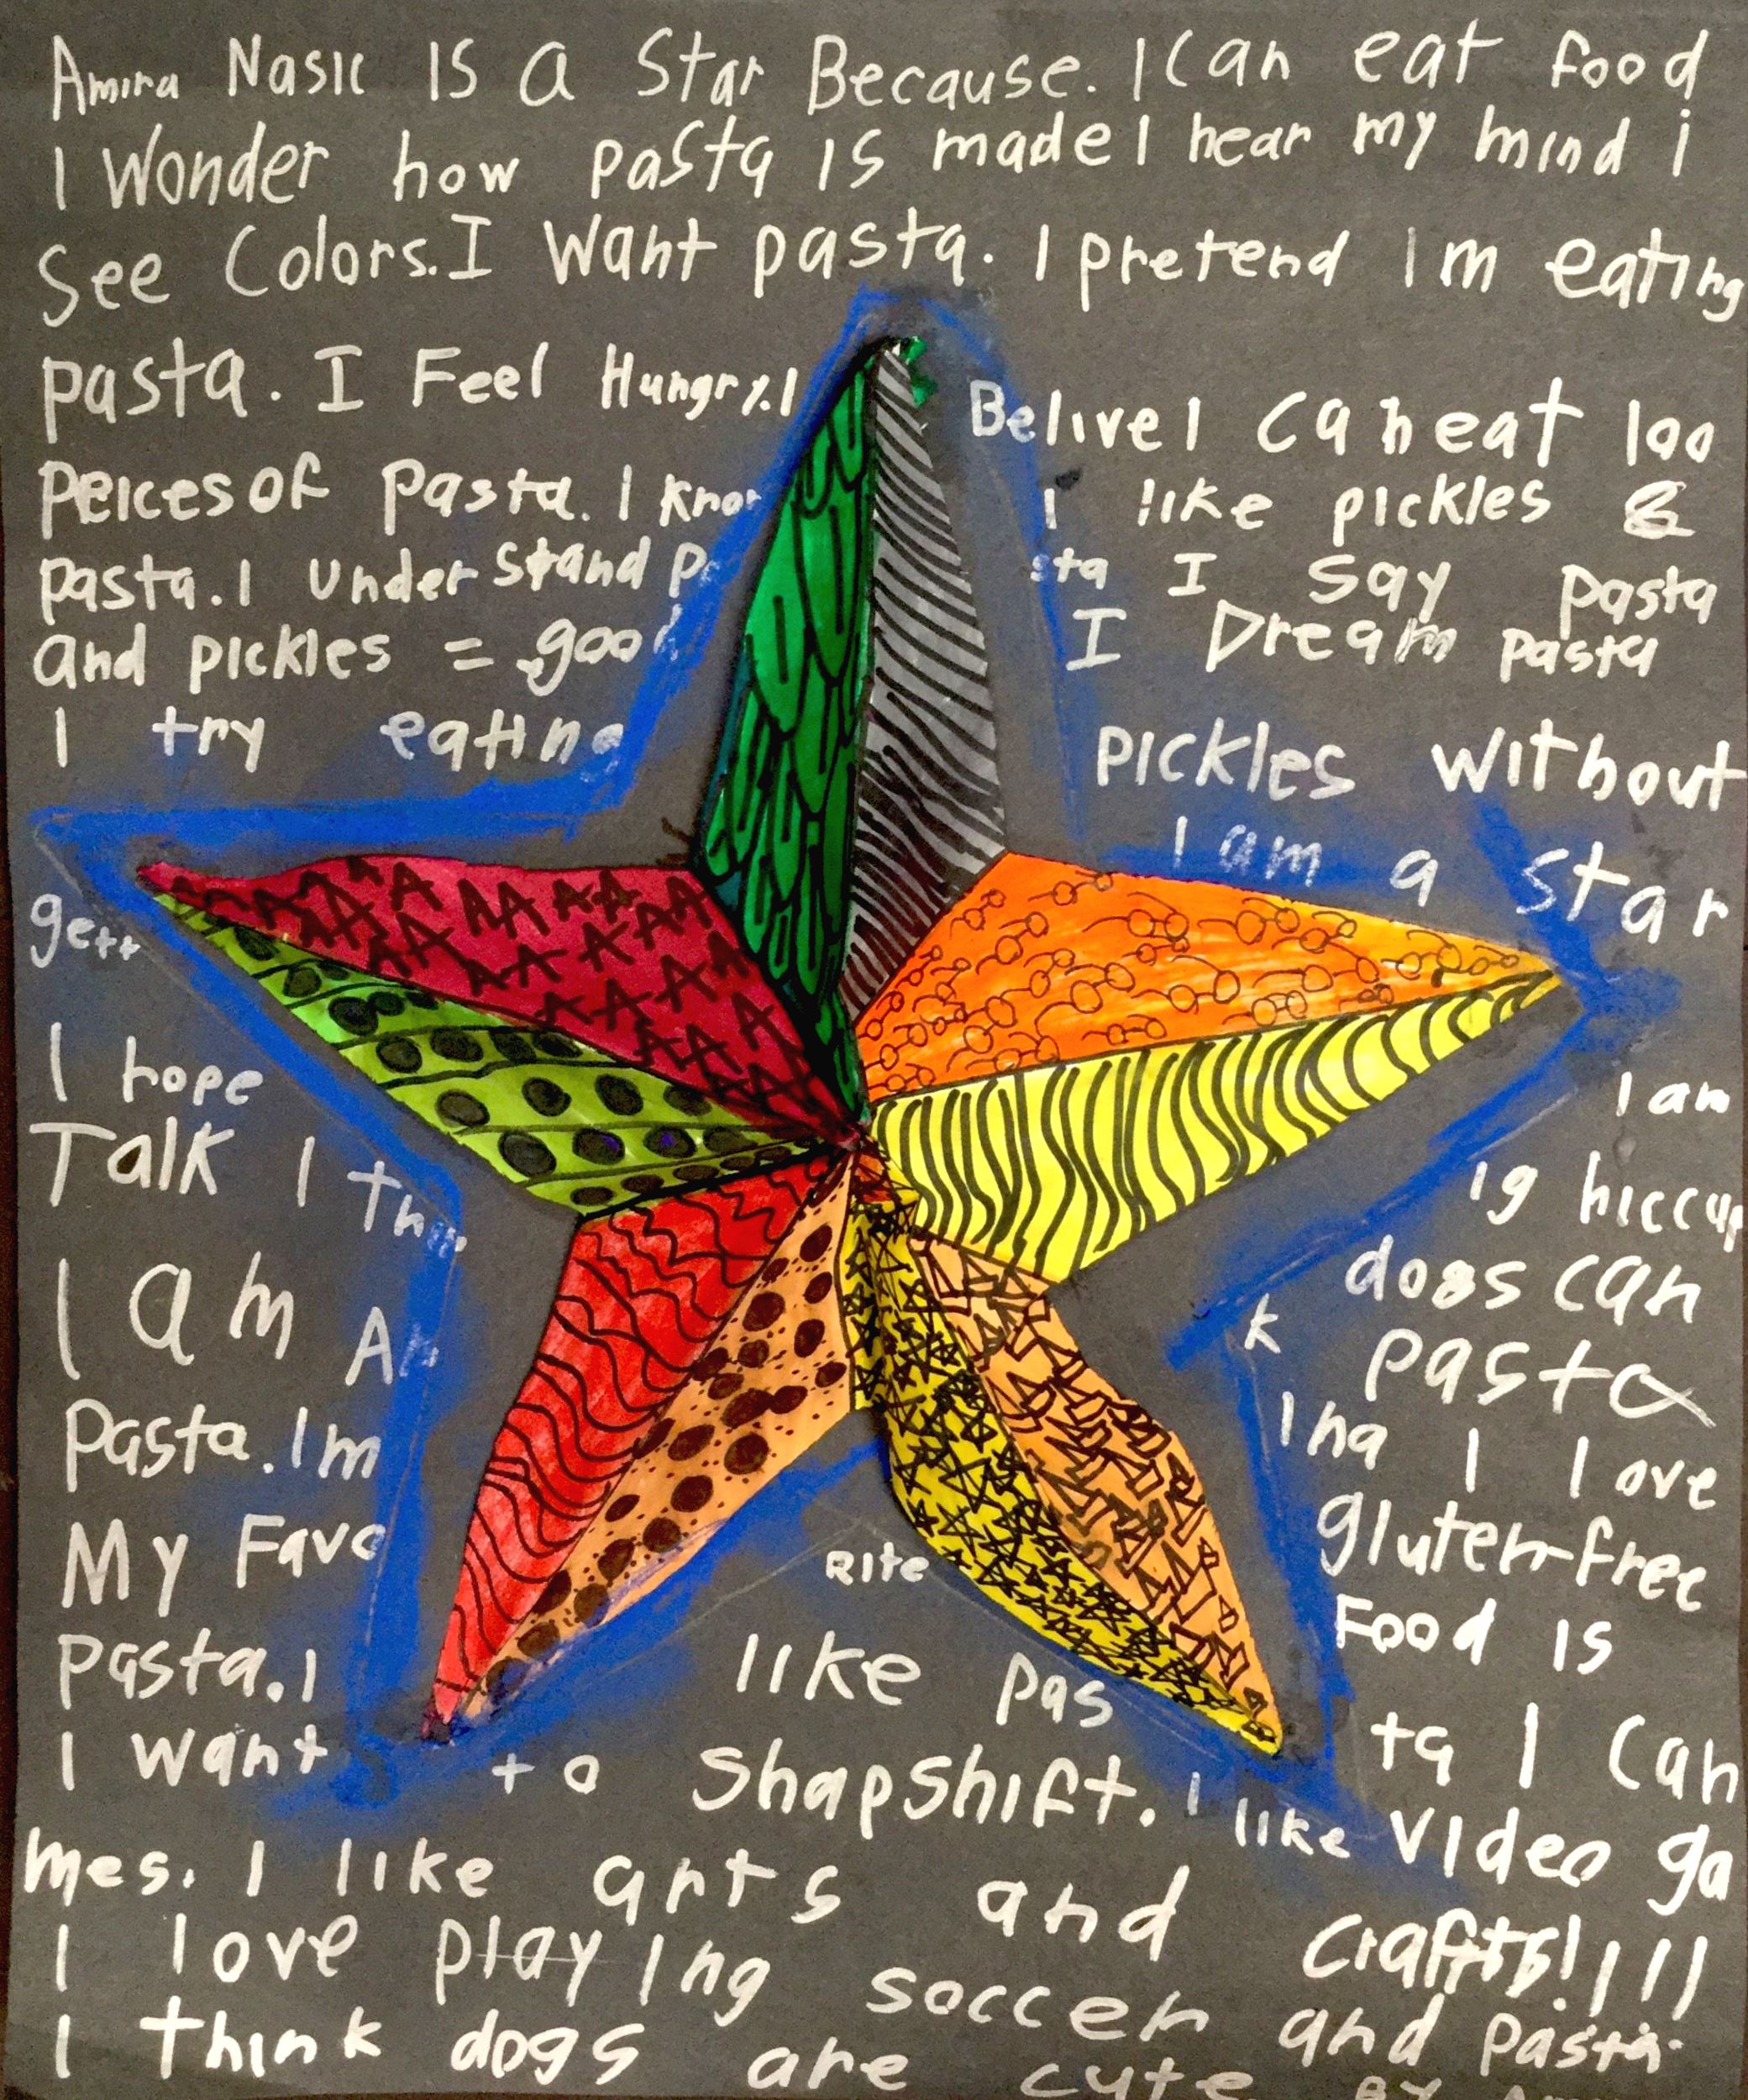 Amira Nasic IS a Star Because. I Can eat food
I Wonder how pasta is made I hear my mind i
See Colors. I Want pasta. I pretend Im eating
pasta. I Feel Hungry. I Belive I Can eat 100
peices of pasta. I know I like pickles &
pasta. I under stand pasta I Say pasta
and pickles = good I Dream pasta
I try eating pickles without
I am a star
gett
I hope I am
Talk I ig hiccup
dogs can
I am k pasta
Pasta. Im Ing I love
gluten-free
My Favo Rite Food is
pasta. I like pas ta I Can
I want to Shapshift. I like Video ga
mes. I like arts and crafts! ! ! !
I love playing soccer and pasta.
I think dogs are cute By